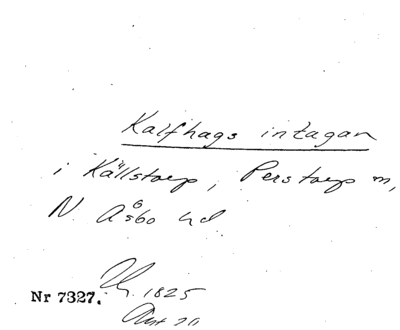 Kalfhags intagan
i Källstorp, Perstorp m,
N. Åsbo hd
1825
Nr 7327.